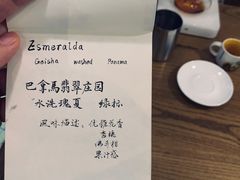 Esmeralda
Geisha washed Panama
巴拿馬翡翠庄园
"水洗瑰夏 绿标
风味描述:佳雅花香
杏桃
佛手柑
果汁感